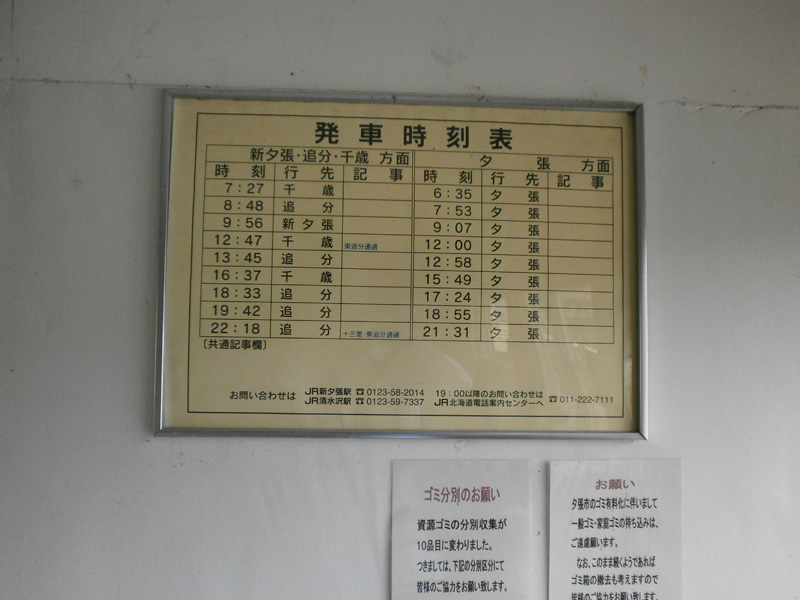 発車時刻表
新夕張・追分・千歳 方面 夕張 方面
時刻 行先 記事 時刻 行先 記事
7:27 千歳 6:35 夕張
8:48 追分 7:53 夕張
9:56 新夕張 9:07 夕張
12:47 千歳 東追分通過 12:00 夕張
13:45 追分 12:58 夕張
16:37 千歳 15:49 夕張
18:33 追分 17:24 夕張
19:42 追分 18:55 夕張
22:18 追分 十三里・東追分通過 21:31 夕張
〔共通記事欄〕
お問い合わせは JR新夕張駅 ☎0123-58-2014 19:00以降のお問い合わせは ☎011-222-7111
JR清水沢駅 ☎0123-59-7337 JR北海道電話案内センターへ
ゴミ分別のお願い
資源ゴミの分別収集が
10品目に変わりました。
つきましては、下記の分別区分にて
皆様のご協力をお願い致します。
お願い
夕張市のゴミ有料化に伴いまして
一般ゴミ・家庭ゴミの持ち込みは、
ご遠慮願います。
なお、このまま続くようであれば
ゴミ箱の撤去も考えますので
皆様のご協力をお願い致します。